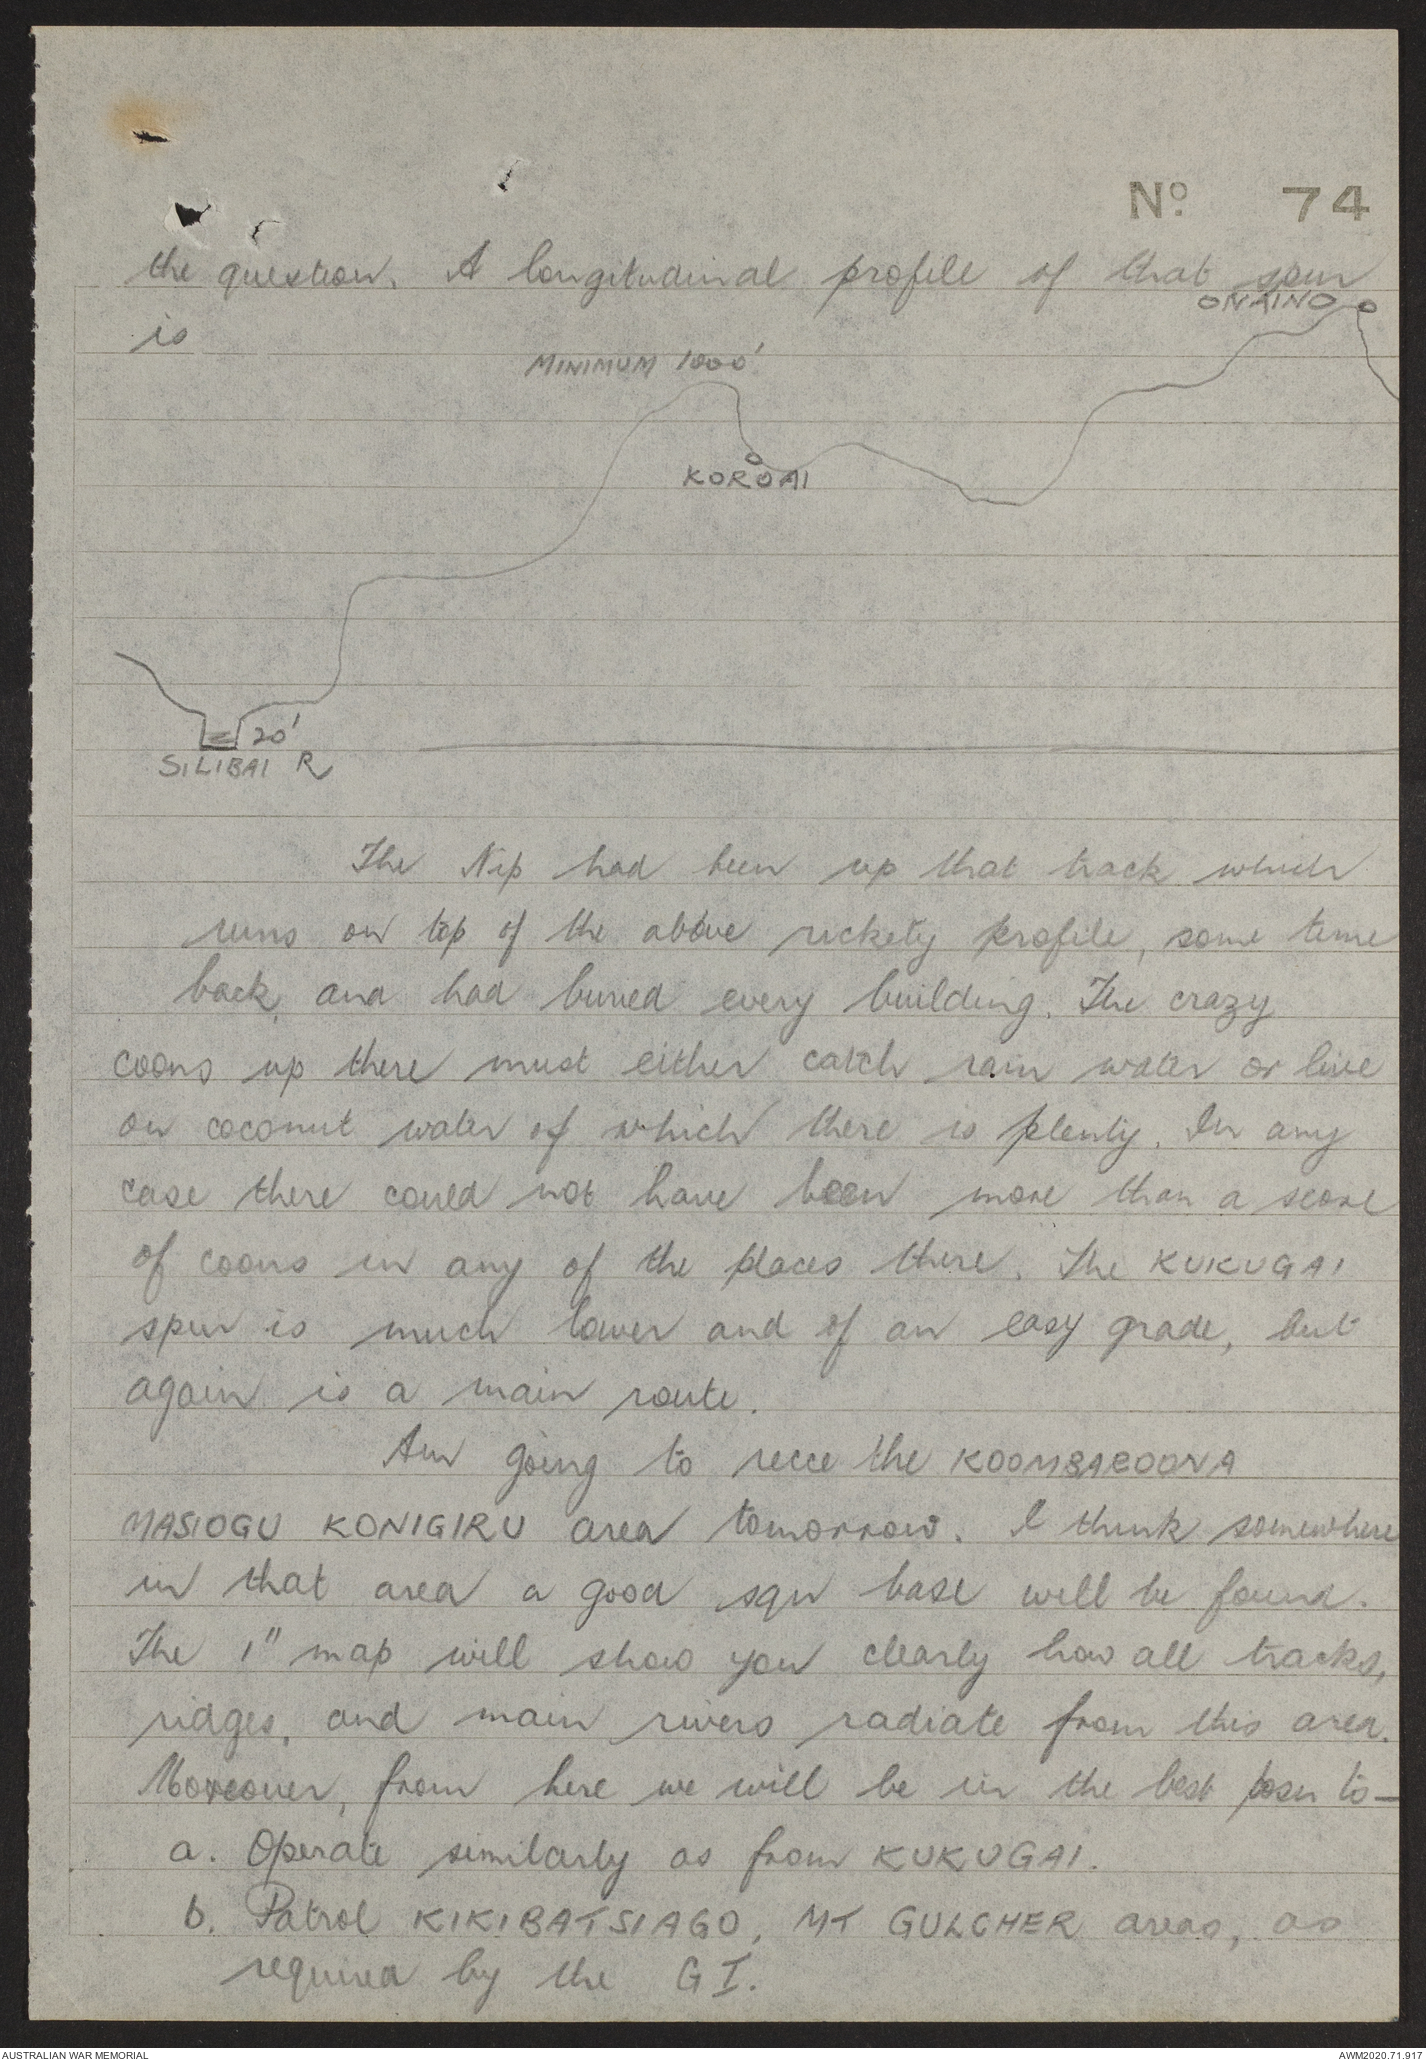 Nº 74
the question. A longitudinal profile of that spur
is
ONAINO
MINIMUM 1000'
KOROAI
20'
SILIBAI R
The Nip had been up that track which
runs on top of the above rickety profile, some time
back, and had burned every building. The crazy
coons up there must either catch rain water or live
on coconut water of which there is plenty. In any
case there could not have been more than a score
of coons in any of the places there. The KUKUGAI
spur is much lower and of an easy grade, but
again is a main route.
Am going to recce the KOOMBAROONA
MASIOGU KONIGIRU area tomorrow. I think somewhere
in that area a good sqn base will be found.
The 1" map will show you clearly how all tracks,
ridges, and main rivers radiate from this area.
Moreover, from here we will be in the best posn to—
a. Operate similarly as from KUKUGAI.
b. Patrol KIKIBATSIAGO, MT GULCHER areas, as
required by the G I.
AUSTRALIAN WAR MEMORIAL
AWM2020.71.917